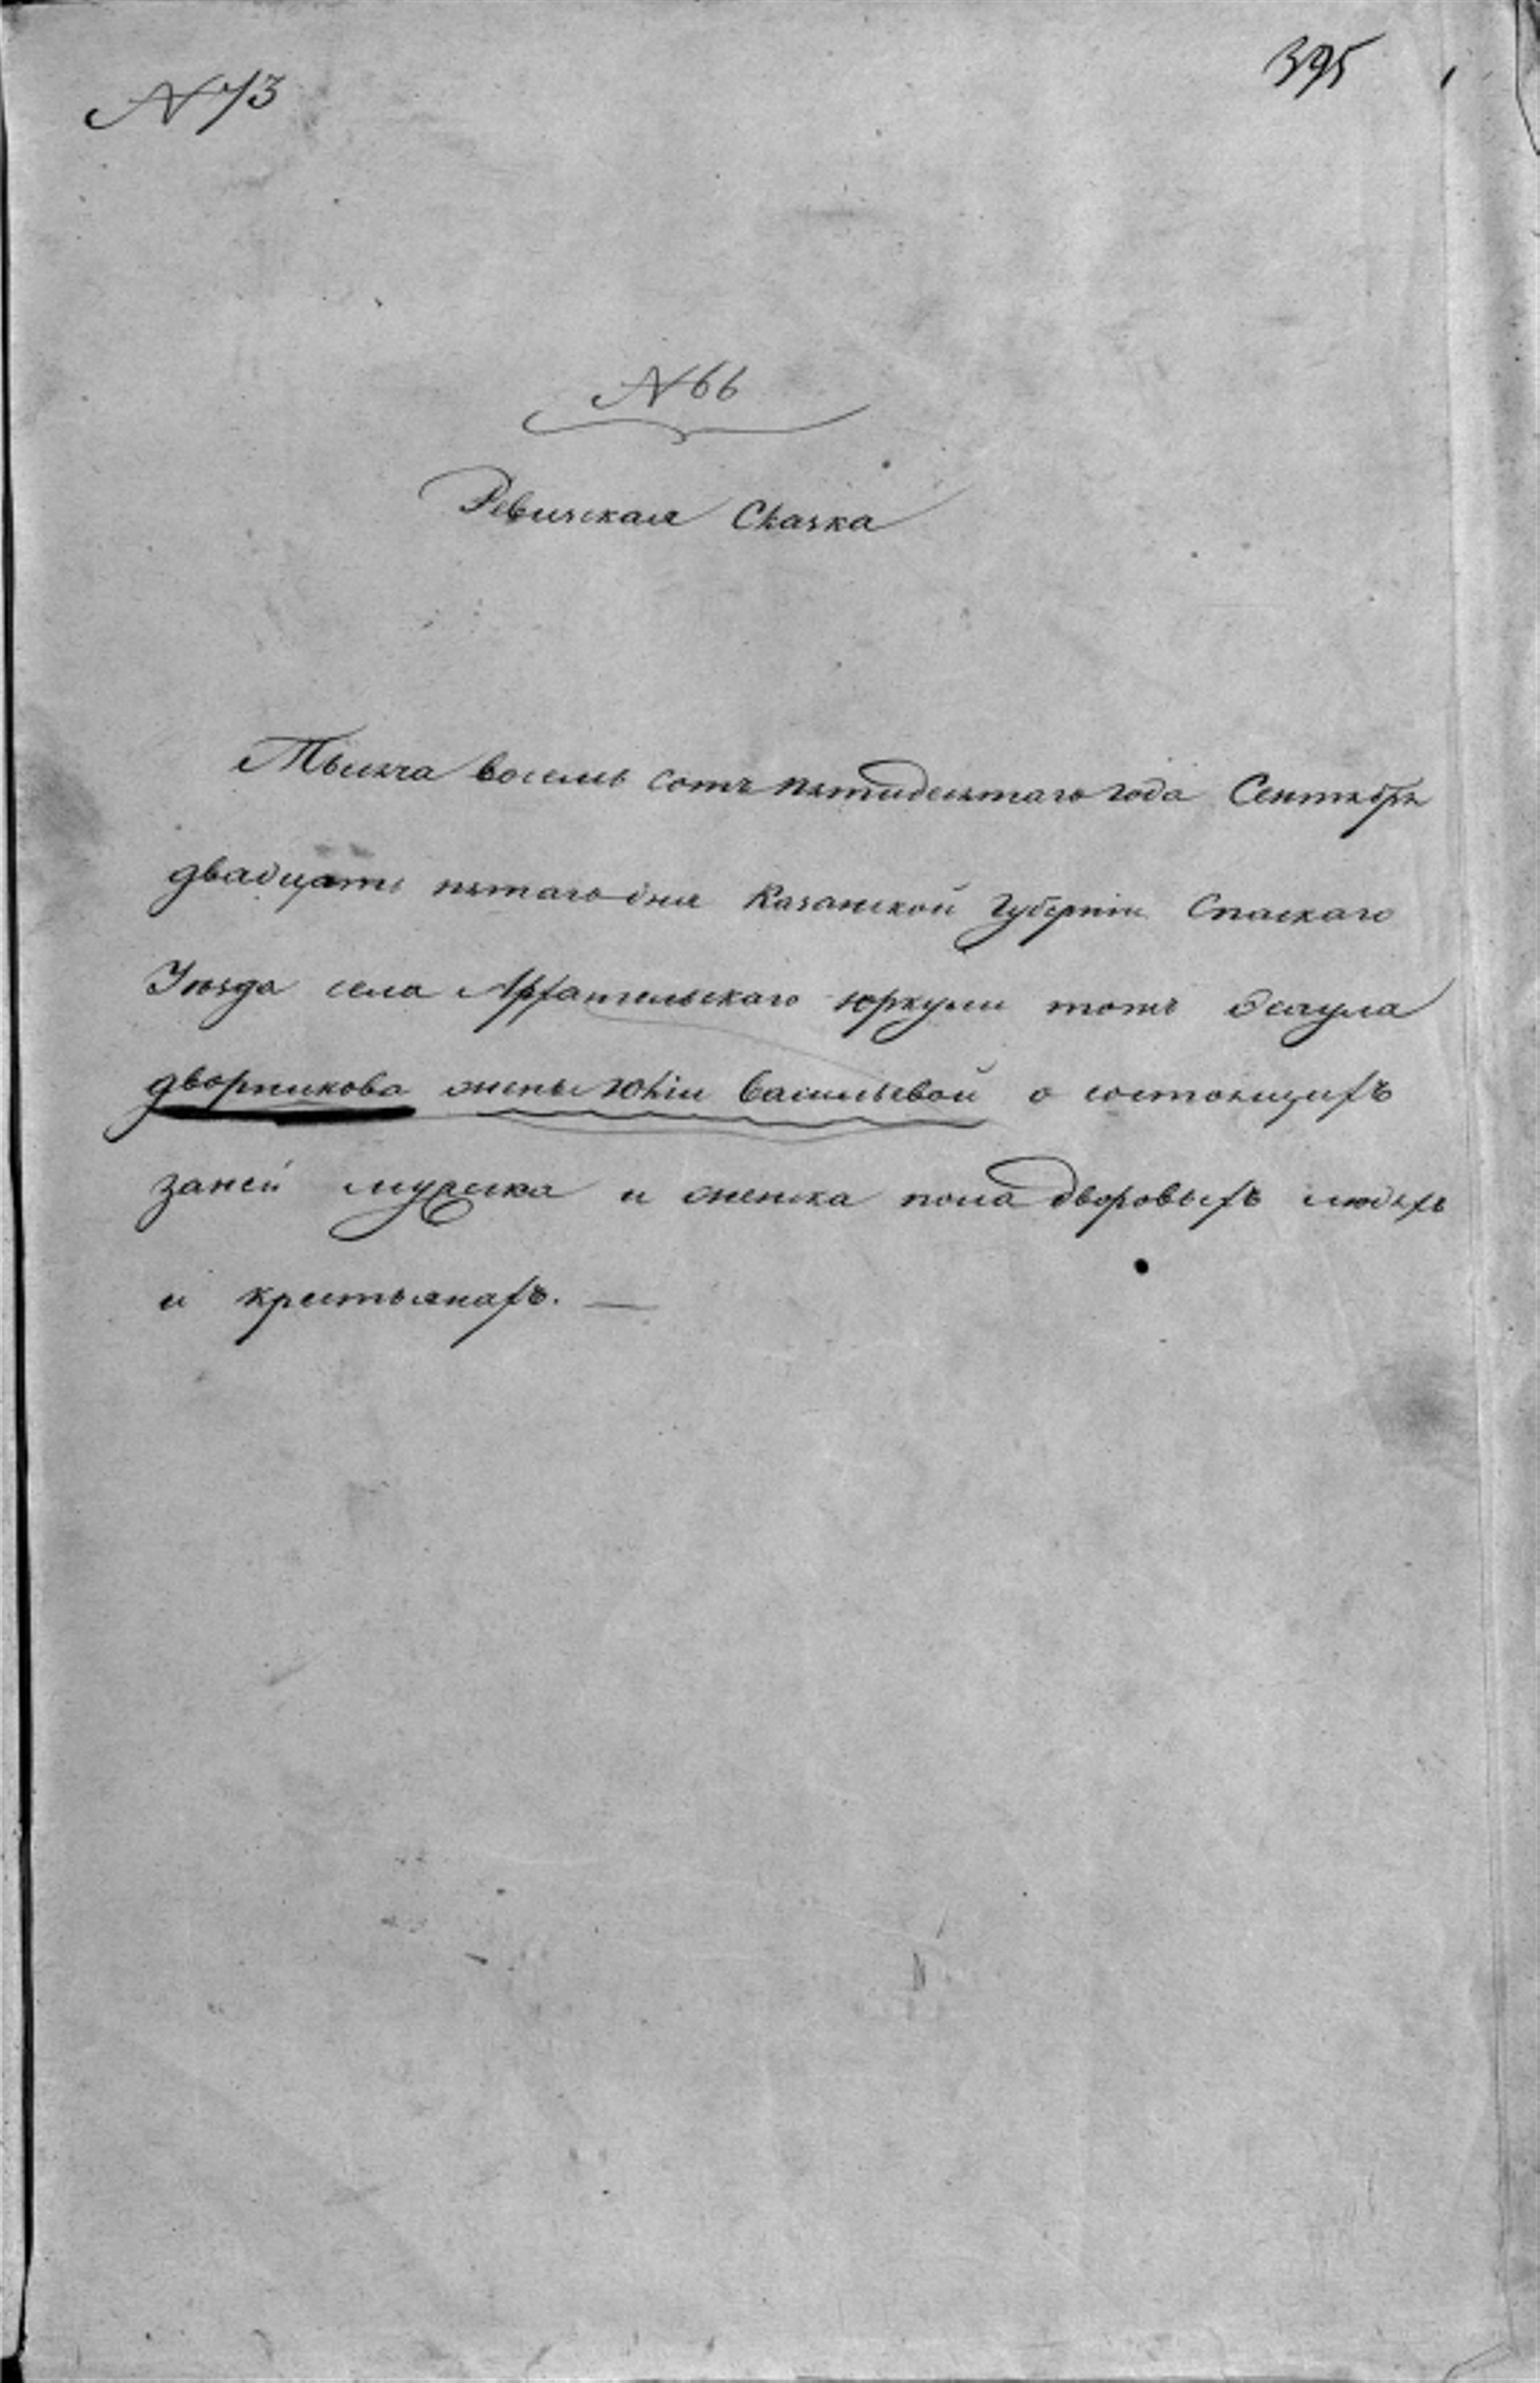 N 73
395
N 66
Ревизская Сказка
Тысяча восемь сотъ пятидесятаго года Сентября
двадцать пятаго дня Казанской Губерніи Спаскаго
Уѣзда села Архангельскаго юркули тожъ Эсаула
дворникова жены Юліи Васильевой о состоящихъ
заней мужска и женска пола дворовыхъ людяхъ
и крестьянахъ. —